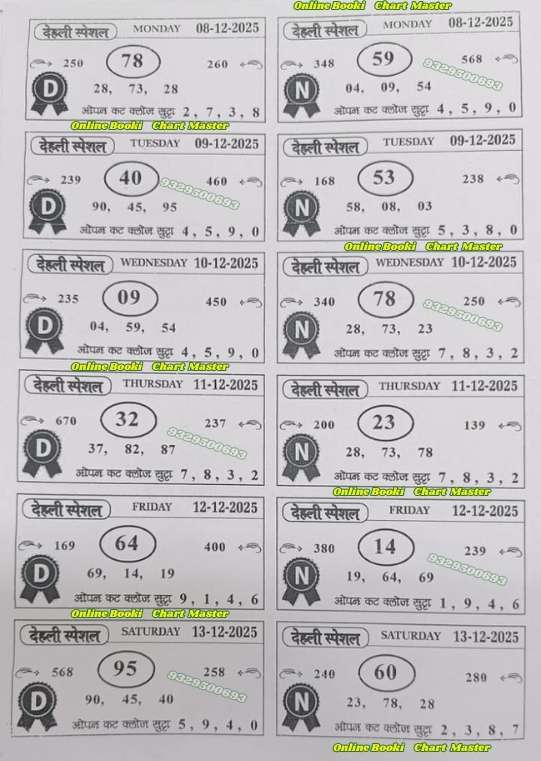 Online Booki Chart Master
देहली स्पेशल MONDAY 08-12-2025
250 78 260
D 28, 73, 28
ओपन कट क्लोज सुट्टा 2, 7, 3, 8
Online Booki Chart Master
देहली स्पेशल MONDAY 08-12-2025
348 59 568
9329300693
N 04, 09, 54
ओपन कट क्लोज सुट्टा 4, 5, 9, 0
देहली स्पेशल TUESDAY 09-12-2025
239 40 460
9329300693
D 90, 45, 95
ओपन कट क्लोज सुट्टा 4, 5, 9, 0
देहली स्पेशल TUESDAY 09-12-2025
168 53 238
N 58, 08, 03
ओपन कट क्लोज सुट्टा 5, 3, 8, 0
Online Booki Chart Master
देहली स्पेशल WEDNESDAY 10-12-2025
235 09 450
D 04, 59, 54
ओपन कट क्लोज सुट्टा 4, 5, 9, 0
Online Booki Chart Master
देहली स्पेशल WEDNESDAY 10-12-2025
340 78 250
9329300693
N 28, 73, 23
ओपन कट क्लोज सुट्टा 7, 8, 3, 2
देहली स्पेशल THURSDAY 11-12-2025
670 32 237
9329300693
D 37, 82, 87
ओपन कट क्लोज सुट्टा 7, 8, 3, 2
देहली स्पेशल THURSDAY 11-12-2025
200 23 139
N 28, 73, 78
ओपन कट क्लोज सुट्टा 7, 8, 3, 2
Online Booki Chart Master
देहली स्पेशल FRIDAY 12-12-2025
169 64 400
D 69, 14, 19
ओपन कट क्लोज सुट्टा 9, 1, 4, 6
Online Booki Chart Master
देहली स्पेशल FRIDAY 12-12-2025
380 14 239
9329300693
N 19, 64, 69
ओपन कट क्लोज सुट्टा 1, 9, 4, 6
देहली स्पेशल SATURDAY 13-12-2025
568 95 258
9329300693
D 90, 45, 40
ओपन कट क्लोज सुट्टा 5, 9, 4, 0
देहली स्पेशल SATURDAY 13-12-2025
240 60 280
N 23, 78, 28
ओपन कट क्लोज सुट्टा 2, 3, 8, 7
Online Booki Chart Master